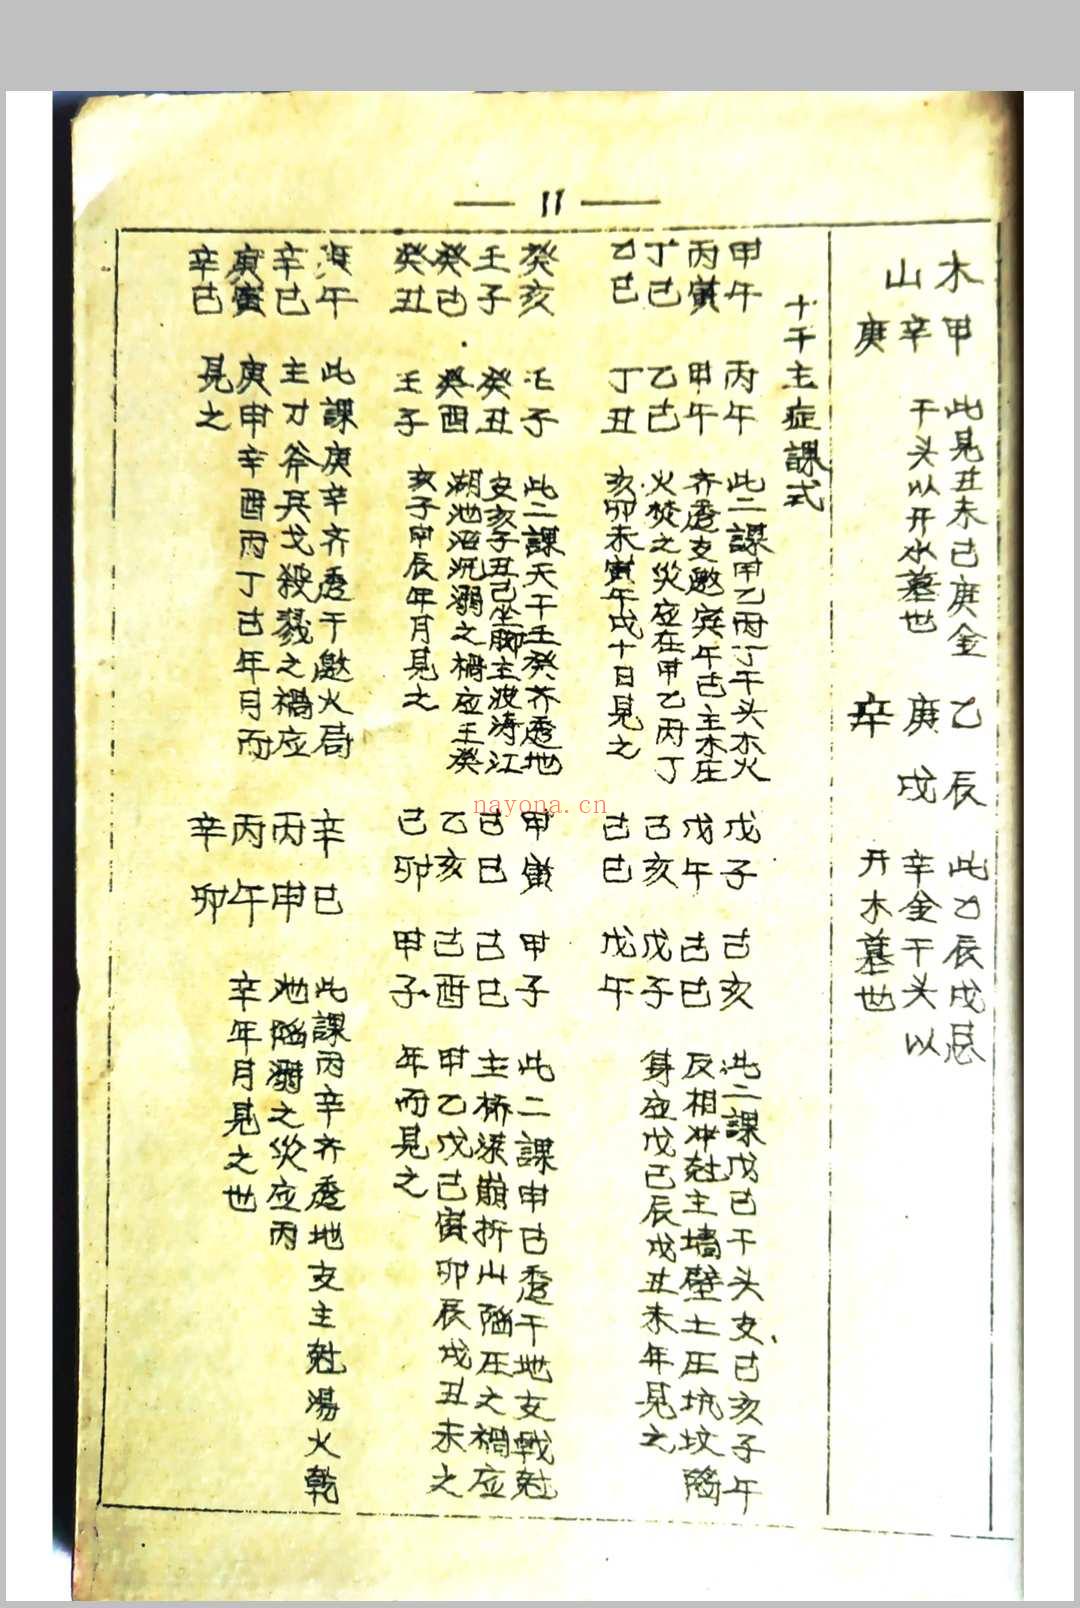 11
木甲 此見丑未己庚金 乙辰 此乙辰戌忌
山辛 干头以开水墓也 庚戌 辛金干头以
庚 辛 开木墓也
十干主症課式
甲午 丙午 此二課甲乙丙丁干头木火
丙寅 甲午 齐透支邀寅午己主木庄
丁巳 乙巳 火焚之災应在甲乙丙丁
乙巳 丁丑 亥卯未寅午戌十日見之
戊子 己亥 此二課戊己干头支己亥子午
戊午 己巳 反相冲尅主墙壁土圧坑坟陷
己亥 戊子 身应戊己辰戌丑未年見之
己巳 戊午
癸亥 壬子 此二課天干壬癸齐透地
壬子 癸丑 支亥子丑己坐脚主波涛江
癸巳 癸酉 湖池沼沉溺之禍应壬癸
癸丑 壬子 亥子申辰年月見之
甲寅 甲子 此二課甲己透干地支戰尅
己巳 己巳 主桥梁崩折山陷圧之禍应
乙亥 己酉 甲乙戊己寅卯辰戌丑未之
己卯 甲子 年而見之
庚午 此課庚辛齐透干邀火局
辛巳 主刀斧兵戈殺戮之禍应
庚寅 庚申辛酉丙丁己年月而
辛巳 見之
辛巳 此課丙辛齐透地支主尅湯火乾
丙申 池陷溺之災应丙
丙午 辛年月見之也
辛卯
nayona.cn